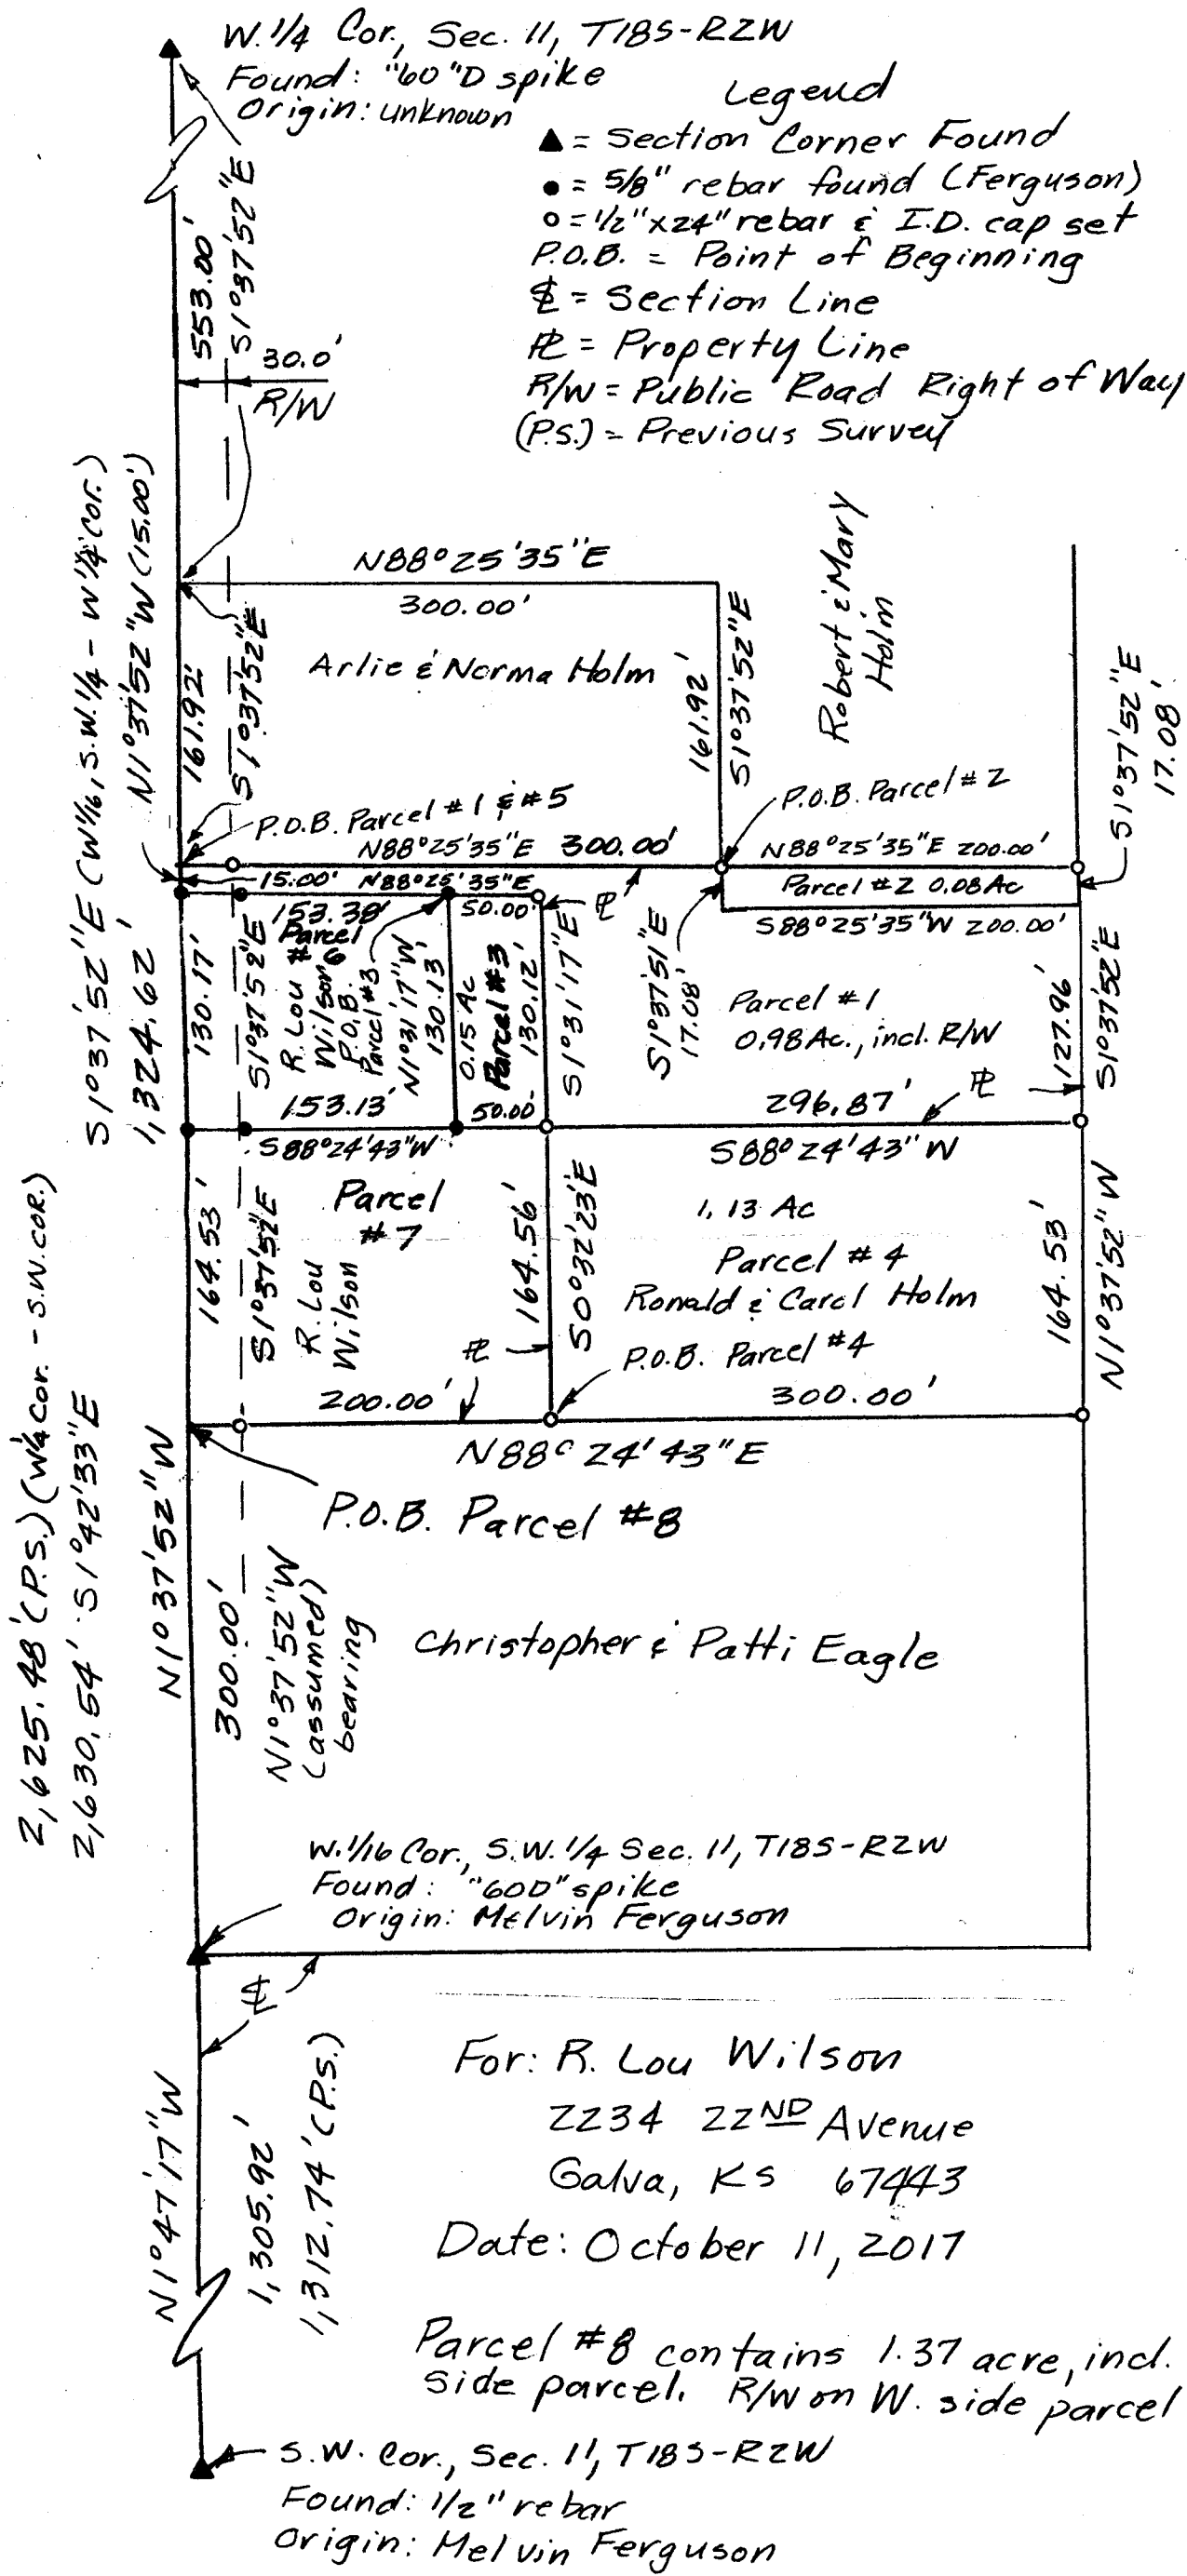 W. 1/4 Cor., Sec. 11, T18S-R2W
Found: "60"D spike
Origin: unknown
Legend
▲ = Section Corner Found
● = 5/8" rebar found (Ferguson)
○ = 1/2" x 24" rebar & I.D. cap set
P.O.B. = Point of Beginning
SL = Section Line
PL = Property Line
R/W = Public Road Right of Way
(P.S.) = Previous Survey
553.00'
S1°37'52"E
30.0'
R/W
S1°37'52"E (W1/16, S.W.1/4 - W1/4 Cor.)
1,324.62'
N1°37'52"W (15.00')
N88°25'35"E
300.00'
Arlie & Norma Holm
161.92'
S1°37'52"E
161.92'
S1°37'52"E
Robert & Mary
Holm
S1°37'52"E
17.08'
P.O.B. Parcel #2
P.O.B. Parcel #1 & #5
N88°25'35"E 300.00'
N88°25'35"E 200.00'
15.00' N88°25'35"E
Parcel #2 0.08 Ac
153.38'
50.00'
PL
S88°25'35"W 200.00'
130.17'
S1°37'52"E
Parcel
#6
R. Lou
Wilson
P.O.B.
Parcel #3
N1°31'17"W
130.13'
0.15 Ac
Parcel #3
130.12'
S1°31'17"E
S1°37'51"E
17.08'
Parcel #1
0.98 Ac., incl. R/W
127.96'
S1°37'52"E
PL
153.13'
50.00
296.87'
S88°24'43"W
S88°24'43"W
164.53'
S1°37'52"E
Parcel
#7
R. Lou
Wilson
164.56'
S0°32'23"E
1.13 Ac
Parcel #4
Ronald & Carol Holm
164.53'
N1°37'52"W
PL
P.O.B. Parcel #4
200.00'
300.00'
N88°24'43"E
P.O.B. Parcel #8
2,625.48' (P.S.) (W1/4 Cor. - S.W. COR.)
2,630.54' S1°42'33"E
N1°37'52"W
300.00'
N1°37'52"W
(assumed)
bearing
Christopher & Patti Eagle
W.1/16 Cor., S.W. 1/4 Sec. 11, T18S-R2W
Found: "60D" spike
Origin: Melvin Ferguson
SL
N1°47'17"W
1,305.92'
1,312.74' (P.S.)
For: R. Lou Wilson
2234 22ND Avenue
Galva, KS 67443
Date: October 11, 2017
Parcel #8 contains 1.37 acre, incl.
side parcel. R/W on W. side parcel
S.W. Cor., Sec. 11, T18S-R2W
Found: 1/2" rebar
Origin: Melvin Ferguson